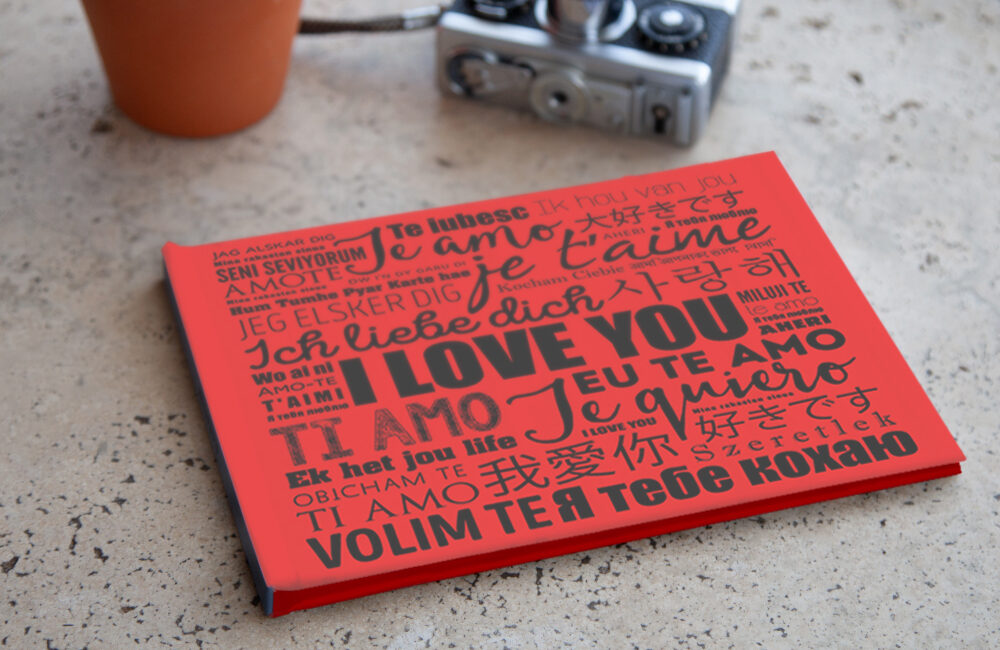 JAG ALSKAR DIG
Te Iubesc
Ik hou van jou
Mina rakastan sinua
Te amo
大好きです
SENI SEVIYORUM
AHERI
Я тебя люблю
AMOTE
DWI'N DY GARU DI
je t'aime
Mina rakastan sinua
Hum Tumhe Pyar Karte hae
Kocham Ciebie
JEG ELSKER DIG
사랑해
Ich liebe dich
MILUJI TE
te amo
Я тебя люблю
Wo ai ni
I LOVE YOU
AHERI
AMO-TE
T'AIMI
EU TE AMO
Я тебя люблю
TI AMO
Te quiero
Mina rakastan sinua
I LOVE YOU
好きです
Ek het jou life
我愛你
Szeretlek
OBICHAM TE
TI AMO
Я тебе кохаю
VOLIM TE